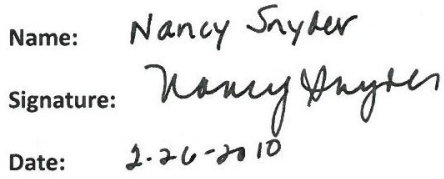 Name: Nancy Snyder
Signature: Nancy Snyder
Date: 2-26-2010